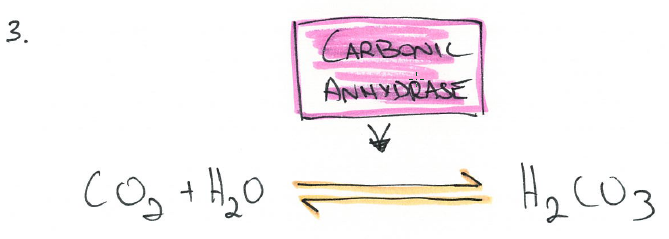 3.
CARBONIC
ANHYDRASE
CO₂ + H₂O ⇌ H₂CO₃